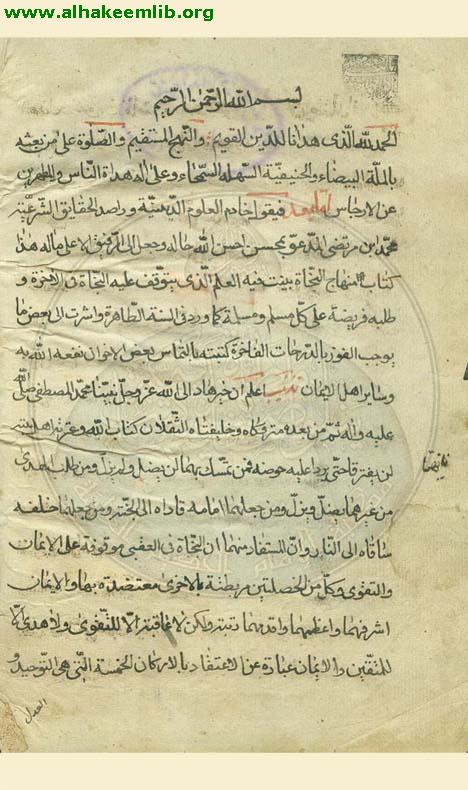 www.alhakeemlib.org
بسم الله الرحمن الرحيم
الحمد لله الذى هدانا للدين القويم والنهج المستقيم والصلوة على من بعثه
بالملة البيضاء والحنيفية السهلة السمحاء وعلى اله هداة الناس والمطهرين
عن الارجاس اما بعد فيقول خادم العلوم الدينية وراصد الحقايق الشرعية
محمد ابن مرتضى المدعو بمحسن احسن الله حاله وجعل الى الرفيق الاعلى ماله هذا
كتاب منهاج النجاة بينت فيه العلم الذى يتوقف عليه النجاة فى الاخرة و
طلبه فريضة على كل مسلم ومسلمة كما ورد فى السنة الطاهرة واشرت الى بعض ما
يوجب الفوز بالدرجات الفاخرة كتبته بالتماس بعض الاخوان نفعه الله به
وساير اهل الايمان اعلم ان خير هاد الى الله عز وجل نبينا محمد المصطفى صلى الله
عليه واله ثم من بعده متروكاه وخليفتاه الثقلان كتاب الله وعترته اهل بيته
لن يفترقا حتى يردا عليه حوضه فمن تمسك بهما لن يضل ولم يزل ومن طلب الهدى
من غيرهما يضل ويزل ومن جعلهما امامه قاداه الى الجنة ومن جعلهما خلفه
ساقاه الى النار وان المستفاد منهما ان النجاة فى العقبى موقوفة على الايمان
والتقوى وكل من الخصلتين مرتبطة بالاخرى معتضدة بها والايمان
اشرفهما واعظمهما واقدمهما رتبة ولكن لا عاقبة الا للتقوى ولا هدى الا
للمتقين والايمان عبارة عن الاعتقاد بالاركان الخمسة التى هى التوحيد و
العدل